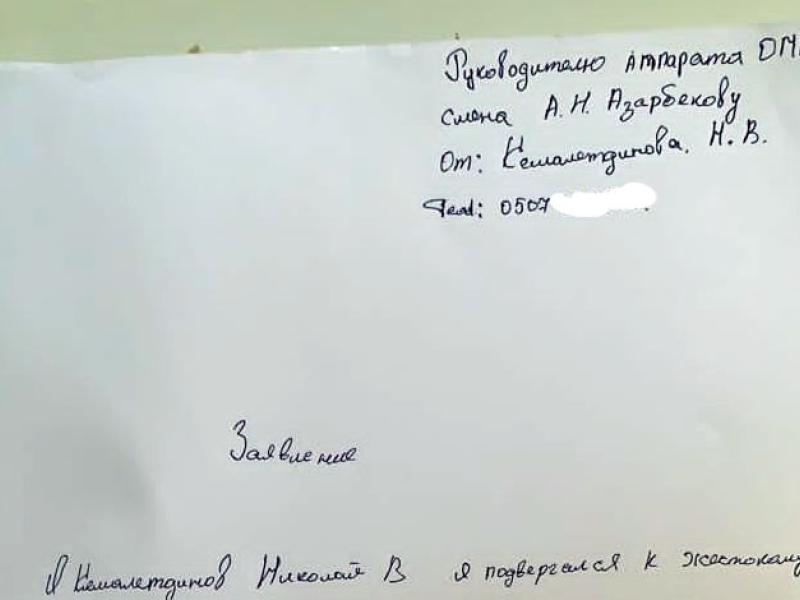 Руководителю Аппарата ОМ
Смена А. Н. Азарбекову
От: Кемалетдинова. Н. В.
Тел: 0507
Заявление
Я Кемалетдинов Николай В я подвергался к жестокому